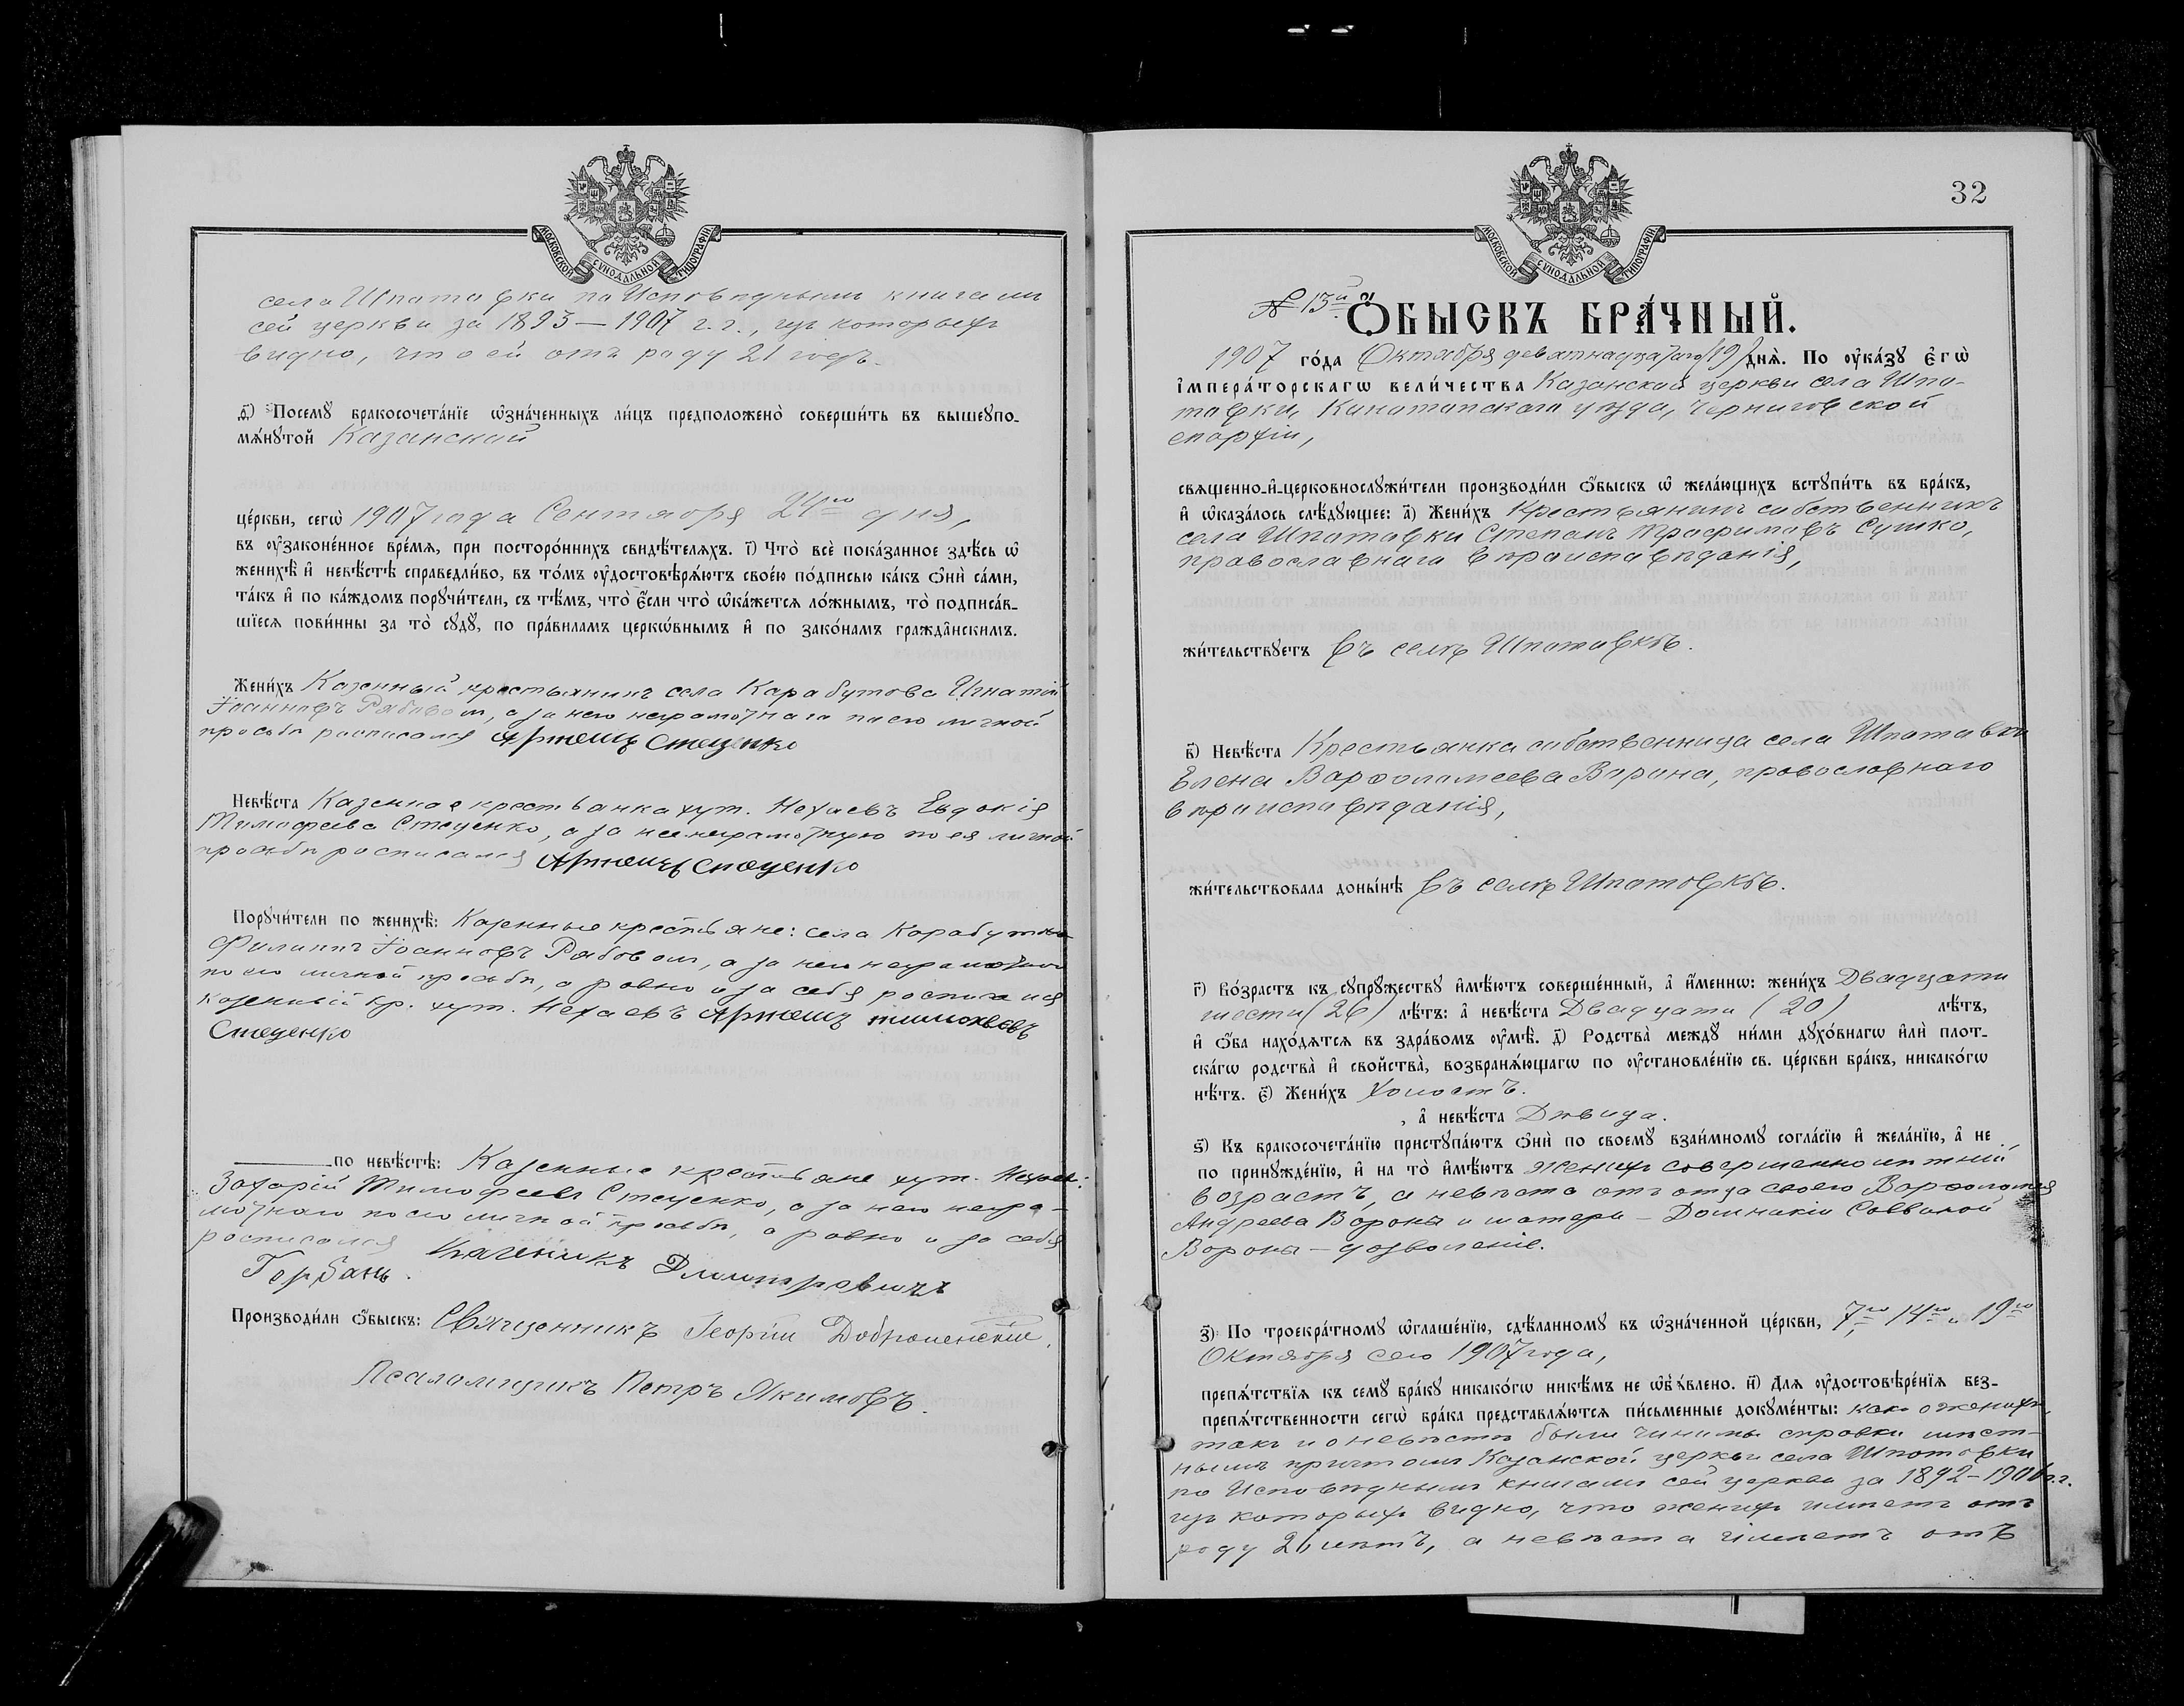 МОСКОВСКОЙ СѴНОДАЛЬНОЙ ТИПОГРАФІИ
села Шпатовки по Исповѣднымъ книгамъ
сей церкви за 1893—1907 г.г., изъ которыхъ
видно, что ей отъ роду 21 годъ.
Посемꙋ̀ бракосочета́нїе ѡ҆зна́ченныхъ ли́цъ предположено̀ соверши́ть въ вышеꙋпо-
мѧ́нꙋтой Казанской
це́ркви, сегѡ̀ 1907 года Сентября 24го дня,
въ оу҆законе́нное вре́мѧ, при посторо́ннихъ свидѣ́телѧхъ. і҃) Что̀ всѐ пока́занное здѣ́сь ѡ҆
женихѣ̀ и҆ невѣ́стѣ справедли́во, въ то́мъ оу҆достовѣрѧ́ютъ свое́ю по́дписью ка́къ ѻ҆нѝ са́ми,
та́къ и҆ по ка́ждомъ порꙋчи́тели, съ тѣ́мъ, что̀ є҆́сли что̀ ѡ҆ка́жетсѧ ло́жнымъ, то̀ подписа́в-
шїесѧ пови́нны за то̀ сꙋдꙋ̀, по пра́виламъ церкѡ́внымъ и҆ по зако́намъ гражда̂нскимъ.
Жени́хъ Казенный крестьянинъ села Карабутова Игнатій
Іоанновъ Рябовол, а за него неграмотнаго по его личной
просьбѣ росписался Артемъ Стеценко
Невѣ́ста Казенная крестьянка хут. Нехаевъ Евдокія
Тимофеева Стеценко, а за нее неграмотную по ея личной
просьбѣ росписался Артемъ Стеценко
Порꙋчи́тели по женихѣ̀: Казенные крестьяне: села Карабутова
Филиппъ Іоанновъ Рябовол, а за него неграмотнаго
по его личной просьбѣ, а равно и за себя росписался
казенный кр. хут. Нехаевъ Артемъ тимохвевъ
Стеценко
по невѣ́стѣ: Казенные крестьяне хут. Нехаев:
Захарій Тимофеевъ Стеценко, а за него негра-
мотнаго по его личной просьбѣ, а равно и за себя
росписался Дмитревичъ
Горбань.
Производи́ли ѻ҆́быскъ: Священникъ Георгій
Псаломщикъ Петръ Якимовъ.
32
МОСКОВСКОЙ СѴНОДАЛЬНОЙ ТИПОГРАФІИ
№ 13й Ѻ҆́БЫСКЪ БРА́ЧНЫЙ.
1907 го́да Октября девятнадцатаго (19) днѧ̀. По оу҆ка́зꙋ є҆гѡ̀
і҆мпера́торскагѡ вели́чества Казанской церкви села Шпа-
товки, Конотопскаго уѣзда, Черниговской
епархіи,
свѧщенно-и҆-церковнослꙋжи́тели производи́ли ѻ҆́быскъ ѡ҆ жела́ющихъ встꙋпи́ть въ бра́къ,
и҆ ѡ҆каза́лось слѣ́дꙋющее: а҃) Жени́хъ Крестьянинъ собственникъ
села Шпатовки Степанъ Трофимовъ Сушко,
православнаго вѣроисповѣданія,
жи́тельствꙋетъ Въ селѣ Шпатовкѣ.
в҃) Невѣ́ста Крестьянка собственница села Шпатовки
Елена Варѳоломеева Ворона, православнаго
вѣроисповѣданія,
жи́тельствовала доны́нѣ Въ селѣ Шпатовкѣ.
г҃) Во́зрастъ къ сꙋпрꙋ́жествꙋ и҆мѣ́ютъ соверше́нный, а҆ и҆́меннѡ: жени́хъ Двадцати
шести (26) лѣ́тъ: а҆ невѣ́ста Двадцати (20) лѣ́тъ,
и҆ ѻ҆́ба нахо́дѧтсѧ въ здра́вомъ оу҆мѣ̀. д҃) Родства̀ междꙋ̀ ни́ми дꙋхо́внагѡ и҆лѝ плот-
ска́гѡ родства̀ и҆ сво́йства, возбранѧ́ющагѡ по оу҆становле́нїю св. це́ркви бра́къ, никако́гѡ
нѣ́тъ. є҃) Жени́хъ Холостъ.
, а҆ невѣ́ста Дѣвица.
ѕ҃) Къ бракосочета́нїю пристꙋпа́ютъ ѻ҆нѝ по своемꙋ̀ взаи́мномꙋ согла́сїю и҆ жела́нїю, а҆ не
по принꙋжде́нїю, и҆ на то̀ и҆мѣ́ютъ Женихъ совершеннолѣтній
возрастъ, а невѣста отъ отца своего Варѳоломея
Андреева Вороны и матери — Домникіи Саввиной
Ворона — дозволеніе.
з҃) По троекра́тномꙋ ѡ҆глаше́нїю, сдѣ́ланномꙋ въ ѡ҆зна́ченной це́ркви, 7го, 14го и 19го
Октября сего 1907 года,
препѧ́тствїѧ къ семꙋ̀ бра́кꙋ никако́гѡ никѣ́мъ не ѡ҆бъѧ́влено. и҃) Длѧ оу҆достовѣре́нїѧ без-
препѧ́тственности сегѡ̀ бра́ка представлѧ́ютсѧ пи́сьменные докꙋме́нты: как о женихѣ,
такъ и о невѣстѣ были чинимы справки мѣст-
нымъ притомъ Казанской церкви села Шпатовки
по Исповѣднымъ книгамъ сей церкви за 1892—1906 г.г.
изъ которыхъ видно, что женихъ имѣетъ отъ
роду 26 лѣтъ, а невѣста имѣетъ отъ